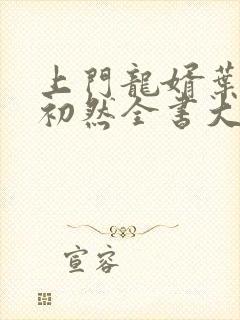 上門龍婿葉
初然全書大
宣容